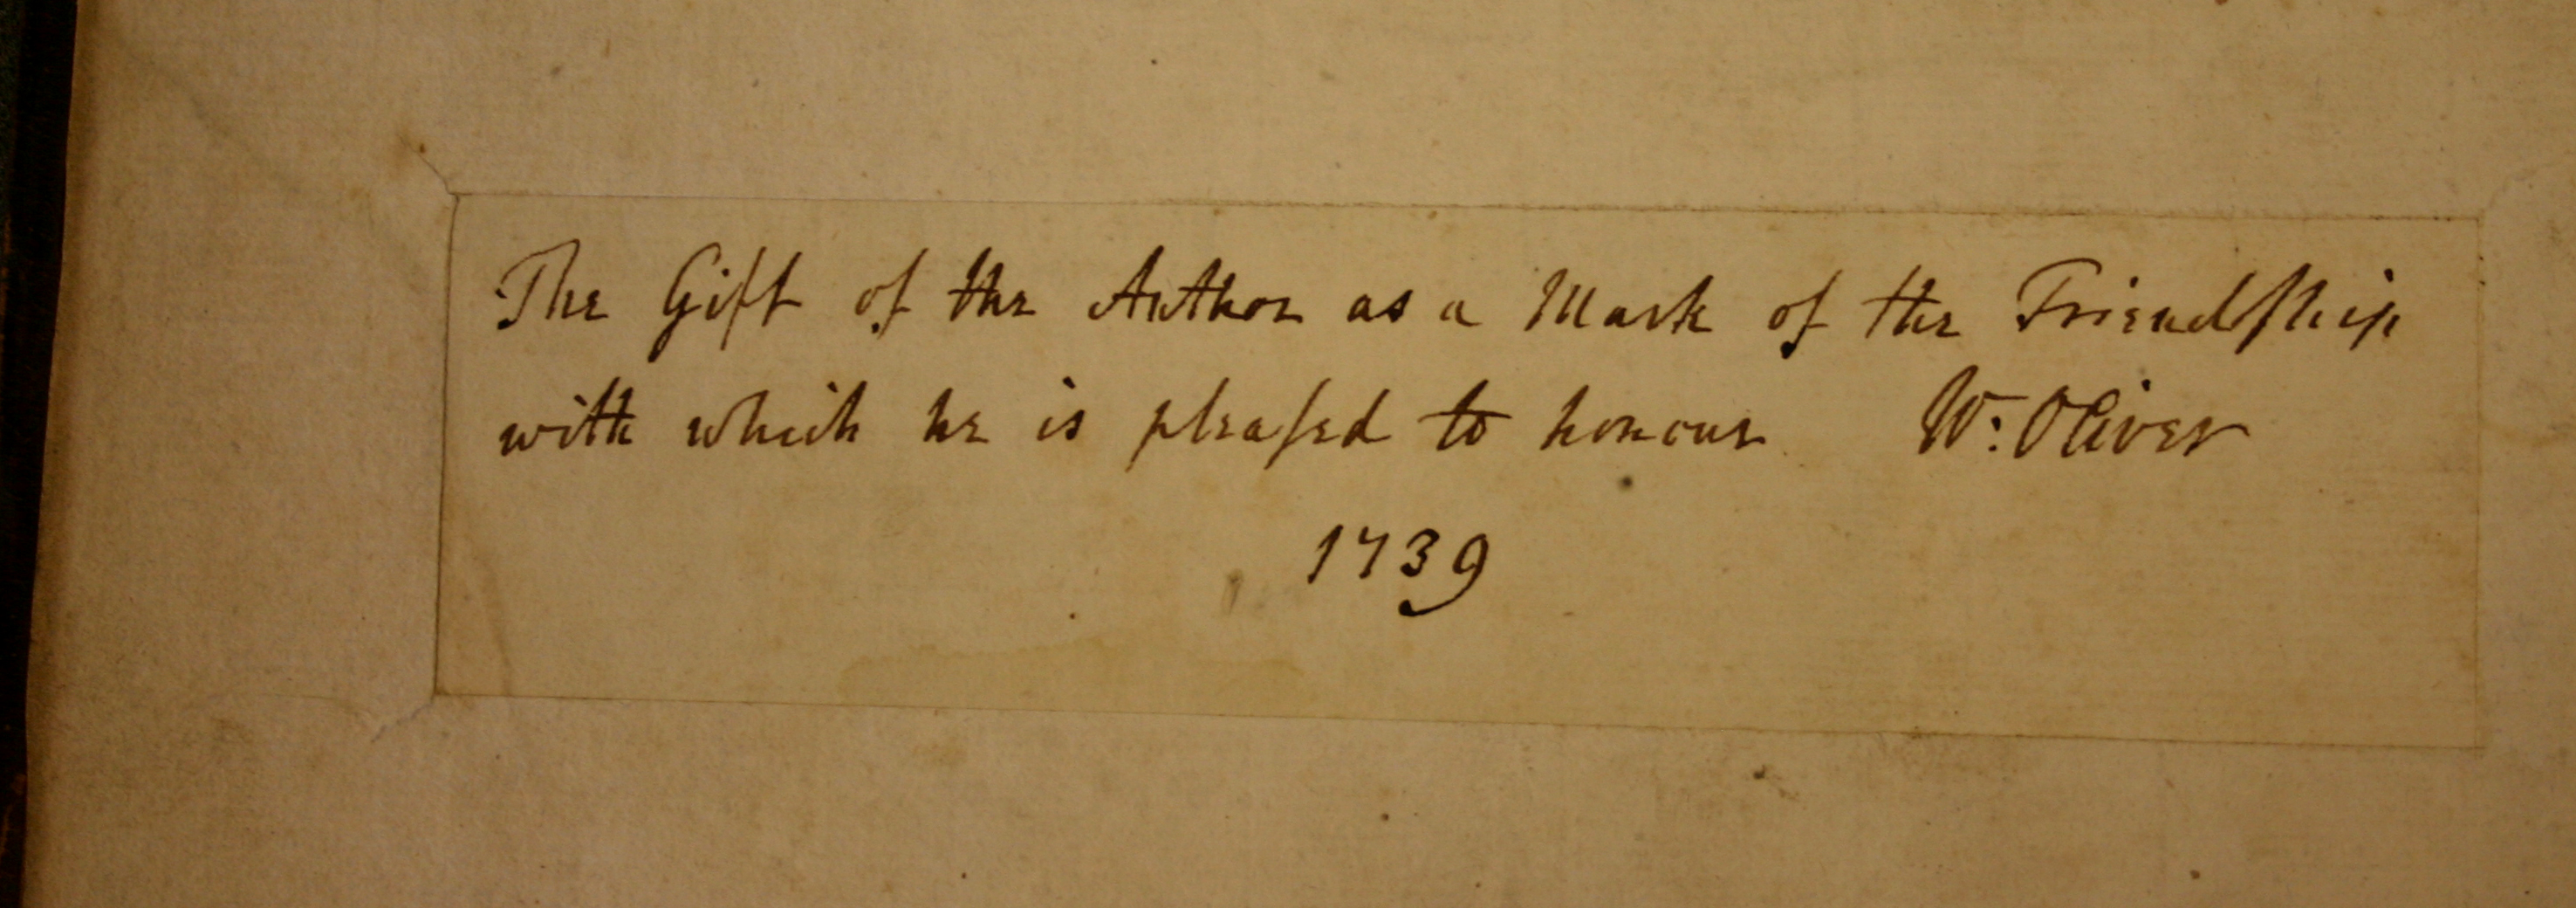 The Gift of the Author as a Mark of the Friendſhip
with which he is pleaſed to honour W: Oliver
1739